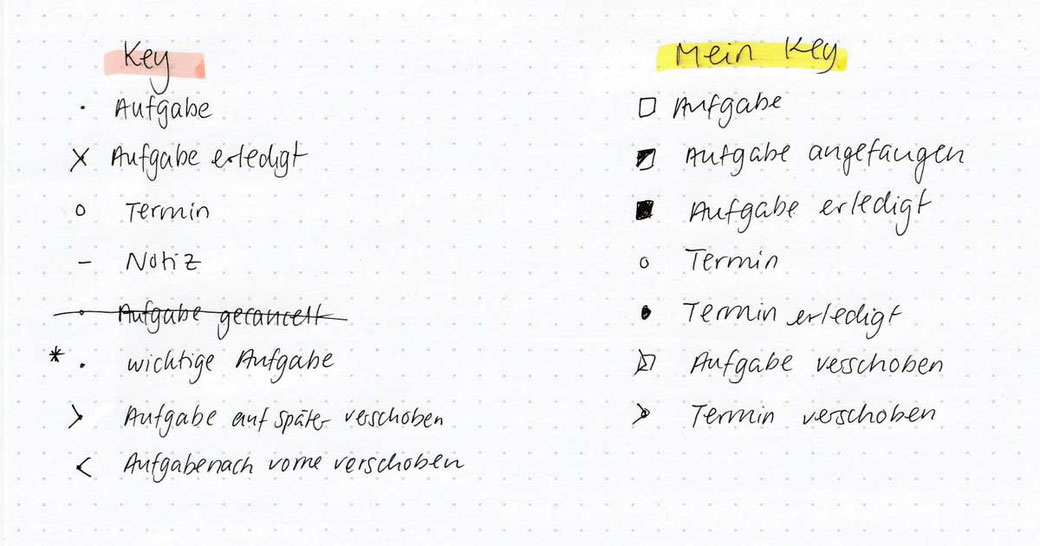 Key
· Aufgabe
x Aufgabe erledigt
o Termin
– Notiz
· Aufgabe gecancelt
* · wichtige Aufgabe
> Aufgabe auf später verschoben
< Aufgabe nach vorne verschoben
Mein Key
□ Aufgabe
◪ Aufgabe angefangen
■ Aufgabe erledigt
o Termin
● Termin erledigt
Aufgabe verschoben
Termin verschoben